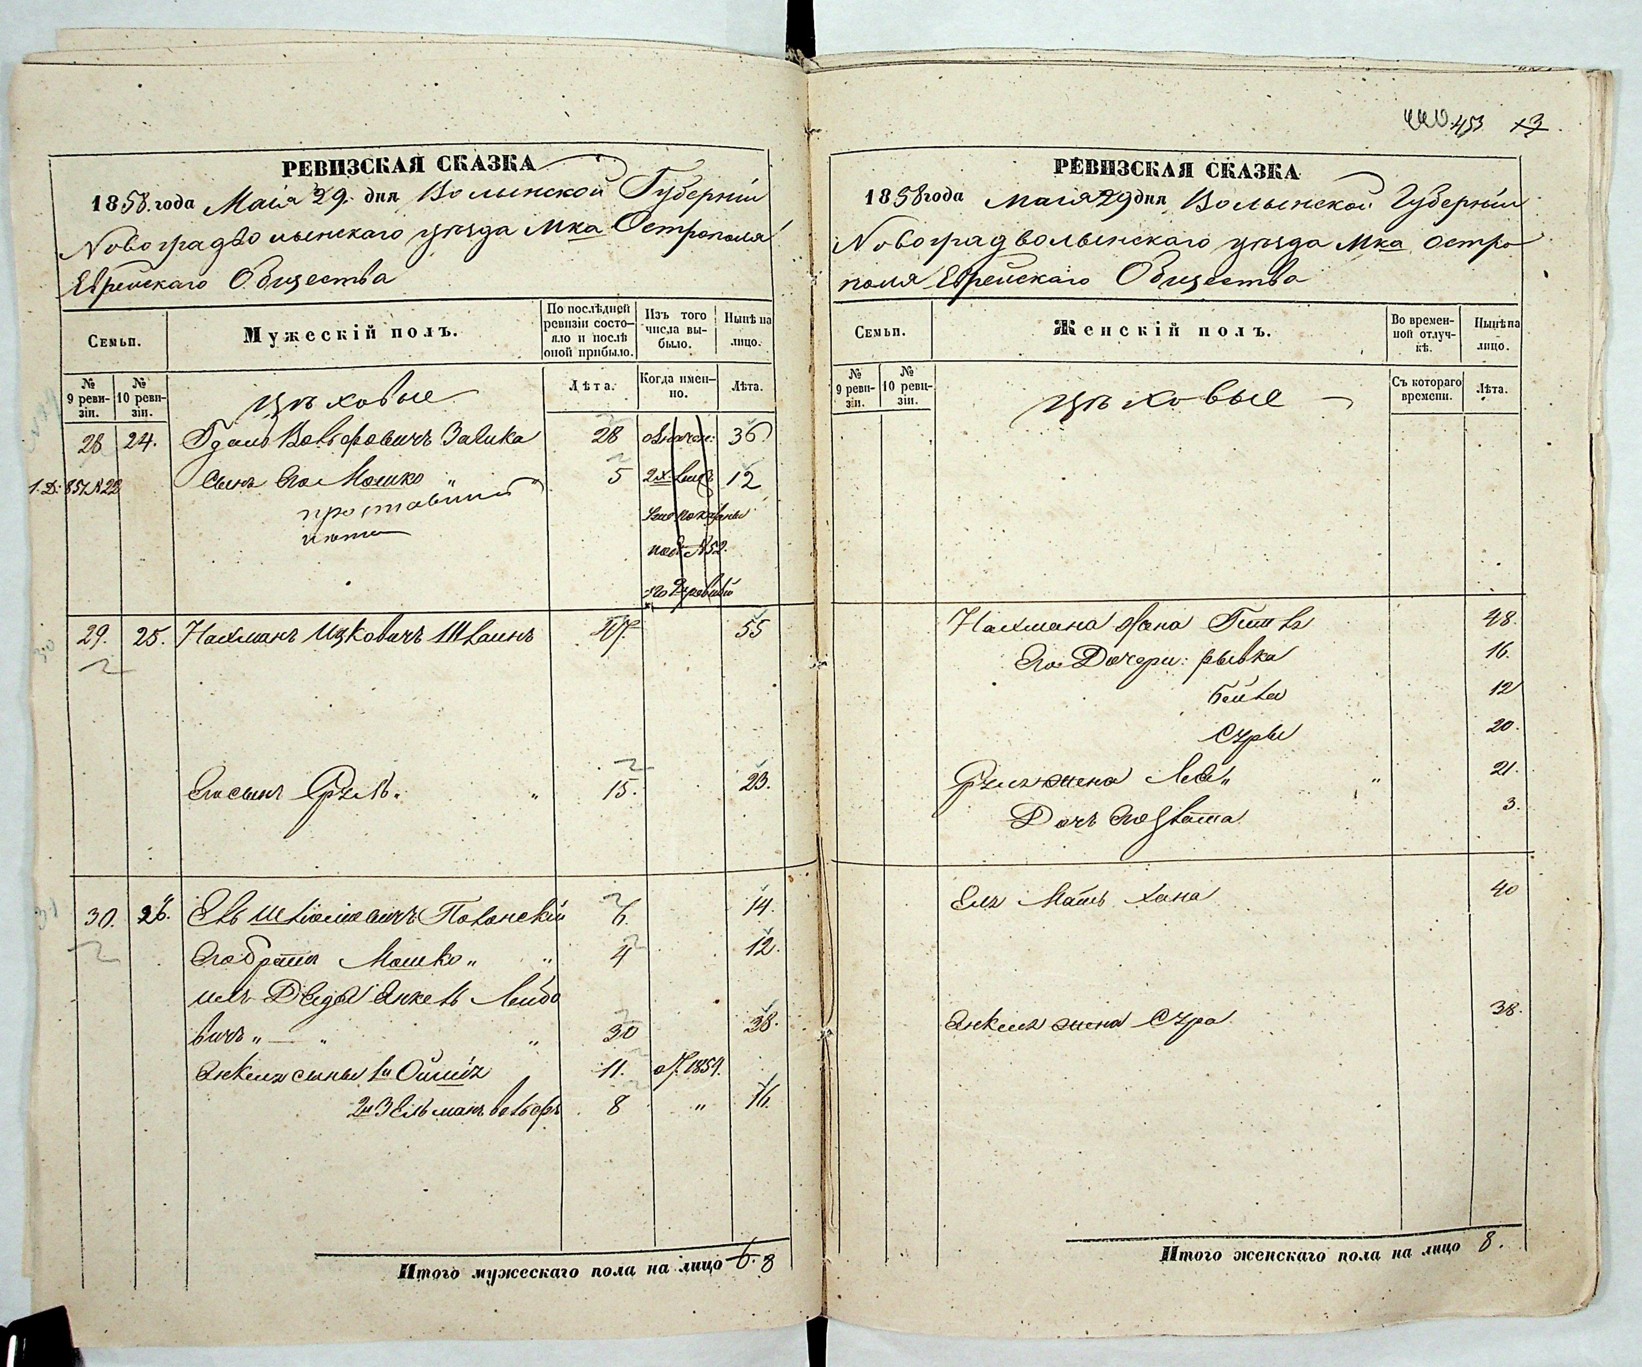 РЕВИЗСКАЯ СКАЗКА
1858. года Маія 29. дня Волынской Губерніи
Новоградволынскаго уѣзда Мка Острополя
Еврейскаго Общества
Семьи.
Мужескій полъ.
По послѣдней ревизіи состояло и послѣ оной прибыло.
Изъ того числа выбыло.
Нынѣ на лицо.
№ 9 ревизіи.
№ 10 ревизіи.
Цѣховые
Лѣта.
Когда именно.
Лѣта.
28 24. Вольфовичъ Заика 28 36
857 № 22 Сынъ его Мошко " 5 2х 12
под № 52.
29. 25. Нахманъ Ицковичъ Штаинъ 47. 55
Его сынъ Сруль " 15. 23.
30. 26. Ель Шліомовичъ Полонскій 6. 14.
Его братъ Мошко " " 4 12.
ихъ Дядя Янкель Лейбо
вичъ " — " " 30 38.
Янкеля сыны 1й 11. 1854.
2й Зельманъ Вольфъ 8 " 16.
Итого мужескаго пола на лицо 6. 8
453 ×3.
РЕВИЗСКАЯ СКАЗКА
1858 года Маія 29 дня Волынской Губерніи
Новоградволынскаго уѣзда Мка Остро-
поля Еврейскаго Общества
Семьи.
Женскій полъ.
Во временной отлучкѣ.
Нынѣ на лицо.
№ 9 ревизіи.
№ 10 ревизіи.
Цѣховые
Съ котораго времени.
Лѣта.
Нахмана жена Гитля 48.
Его Дочери: Рывка 16.
Бейля 12
Суры 20.
Сруля жена Лея " " 21.
Дочь его 3.
Еля Мать Хана 40
Янкеля жена Сура 38.
Итого женскаго пола на лицо 8.